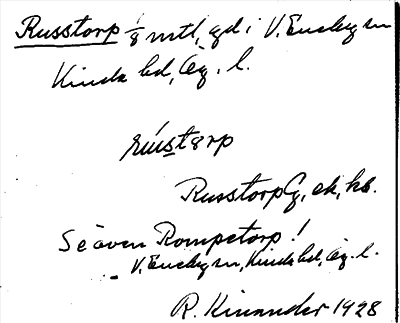 Russtorp 1/8 mtl, gd i V. Eneby sn
Kinda hd, Ög. l.
rúustarp
Russtorp G, ek, kb.
Se även Rompetorp!
- V. Eneby sn, Kinda hd, Ög. l.
R. Kinander 1928